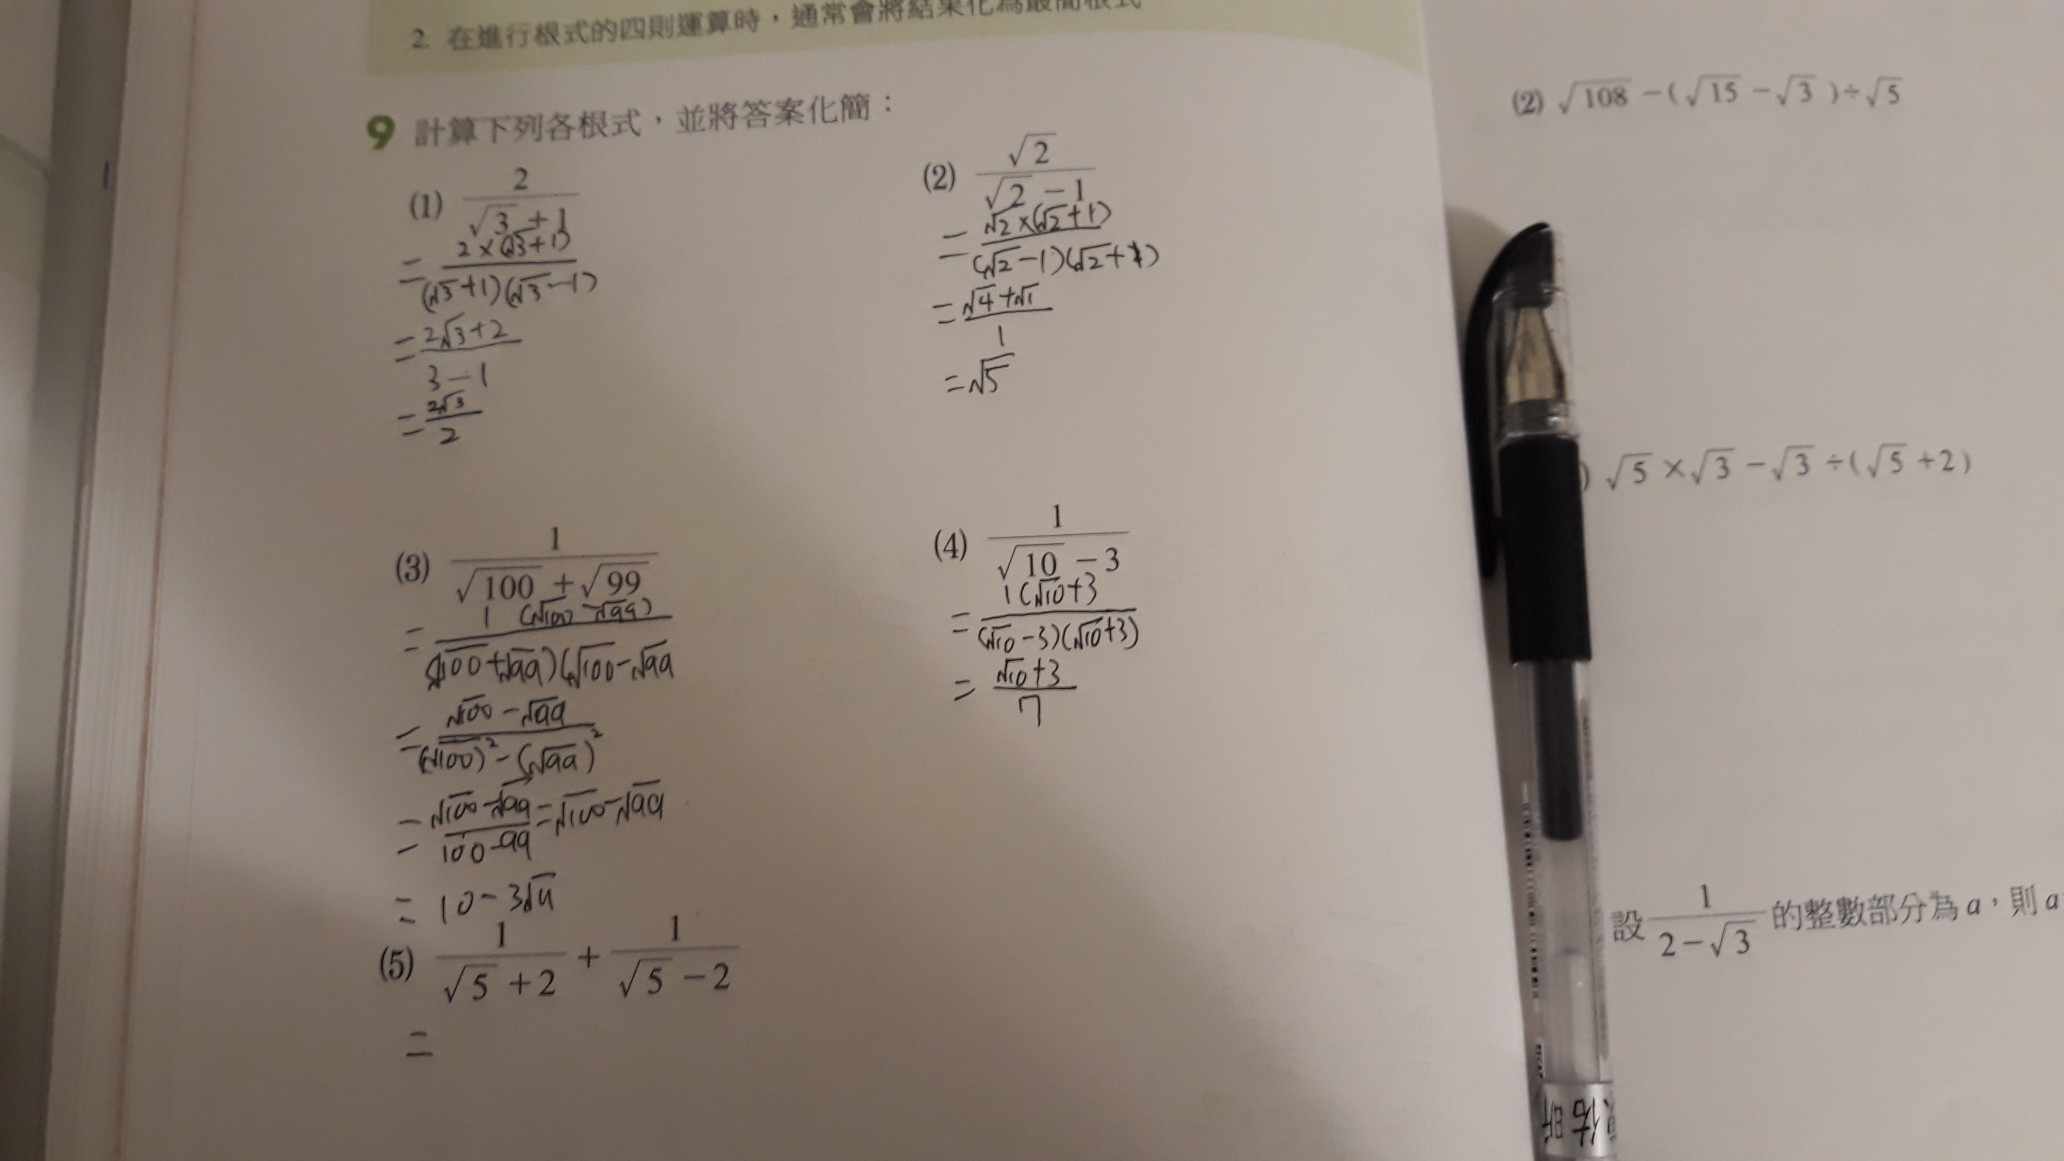 2. 在進行根式的四則運算時，通常會將結果化為最簡根式
9 計算下列各根式，並將答案化簡：
(1) 2/(√3+1)
= 2×(√3+1)/(√3+1)(√3-1)
= 2√3+2/3-1
= 2√3/2
(2) √2/(√2-1)
= √2×(√2+1)/(√2-1)(√2+1)
= √4+√1/1
= √5
(3) 1/(√100+√99)
= 1(√100-√99)/(√100+√99)(√100-√99
= √100-√99/(√100)²-(√99)²
= √100-√99/100-99 = √100-√99
= 10-3√11
(4) 1/(√10-3)
= 1(√10+3/(√10-3)(√10+3)
= √10+3/7
(5) 1/(√5+2) + 1/(√5-2)
=
(2) √108-(√15-√3)÷√5
) √5×√3-√3÷(√5+2)
設 1/(2-√3) 的整數部分為a，則a